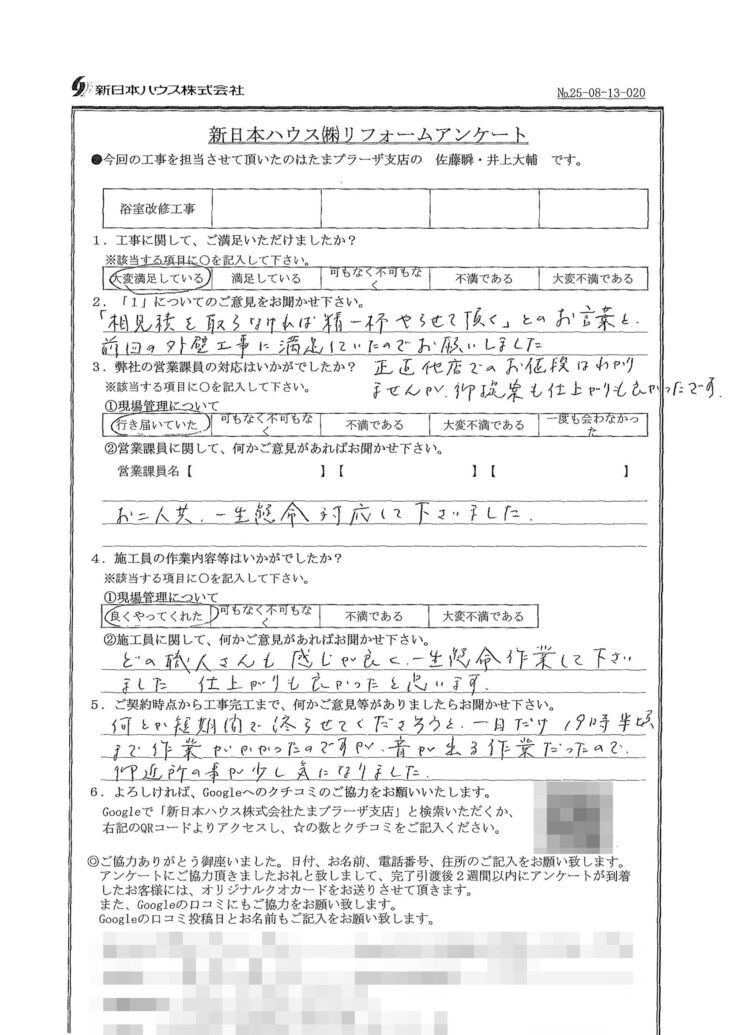 新日本ハウス株式会社
No.25-08-13-020
新日本ハウス㈱リフォームアンケート
●今回の工事を担当させて頂いたのはたまプラーザ支店の 佐藤瞬・井上大輔 です。
浴室改修工事
1．工事に関して、ご満足いただけましたか？
※該当する項目に○を記入して下さい。
大変満足している 満足している 可もなく不可もなく 不満である 大変不満である
2．「1」についてのご意見をお聞かせ下さい。
「相見積を取らなければ精一杯やらせて頂く」とのお言葉と、
前回の外壁工事に満足していたのでお願いしました
3．弊社の営業課員の対応はいかがでしたか？
正直他店でのお値段はわかり
※該当する項目に○を記入して下さい。
ませんが、御提案も仕上がりも良かったです。
①現場管理について
行き届いていた 可もなく不可もなく 不満である 大変不満である 一度も会わなかった
②営業課員に関して、何かご意見があればお聞かせ下さい。
営業課員名【 】【 】【 】
お二人共、一生懸命対応して下さいました。
4．施工員の作業内容等はいかがでしたか？
※該当する項目に○を記入して下さい。
①現場管理について
良くやってくれた 可もなく不可もなく 不満である 大変不満である
②施工員に関して、何かご意見があればお聞かせ下さい。
どの職人さんも感じが良く、一生懸命作業して下さい
ました 仕上がりも良かったと思います。
5．ご契約時点から工事完工まで、何かご意見等がありましたらお聞かせ下さい。
何とか短期間で終らせてくださろうと、一日だけ19時半頃
まで作業がかかったのですが、音が出る作業だったので、
御近所の事が少し気になりました。
6．よろしければ、Googleへのクチコミのご協力をお願いいたします。
Googleで「新日本ハウス株式会社たまプラーザ支店」と検索いただくか、
右記のQRコードよりアクセスし、☆の数とクチコミをご記入ください。
◎ご協力ありがとう御座いました。日付、お名前、電話番号、住所のご記入をお願い致します。
アンケートにご協力頂きましたお礼と致しまして、完了引渡後2週間以内にアンケートが到着
したお客様には、オリジナルクオカードをお送りさせて頂きます。
また、Googleの口コミにもご協力をお願い致します。
Googleの口コミ投稿日とお名前もご記入をお願い致します。